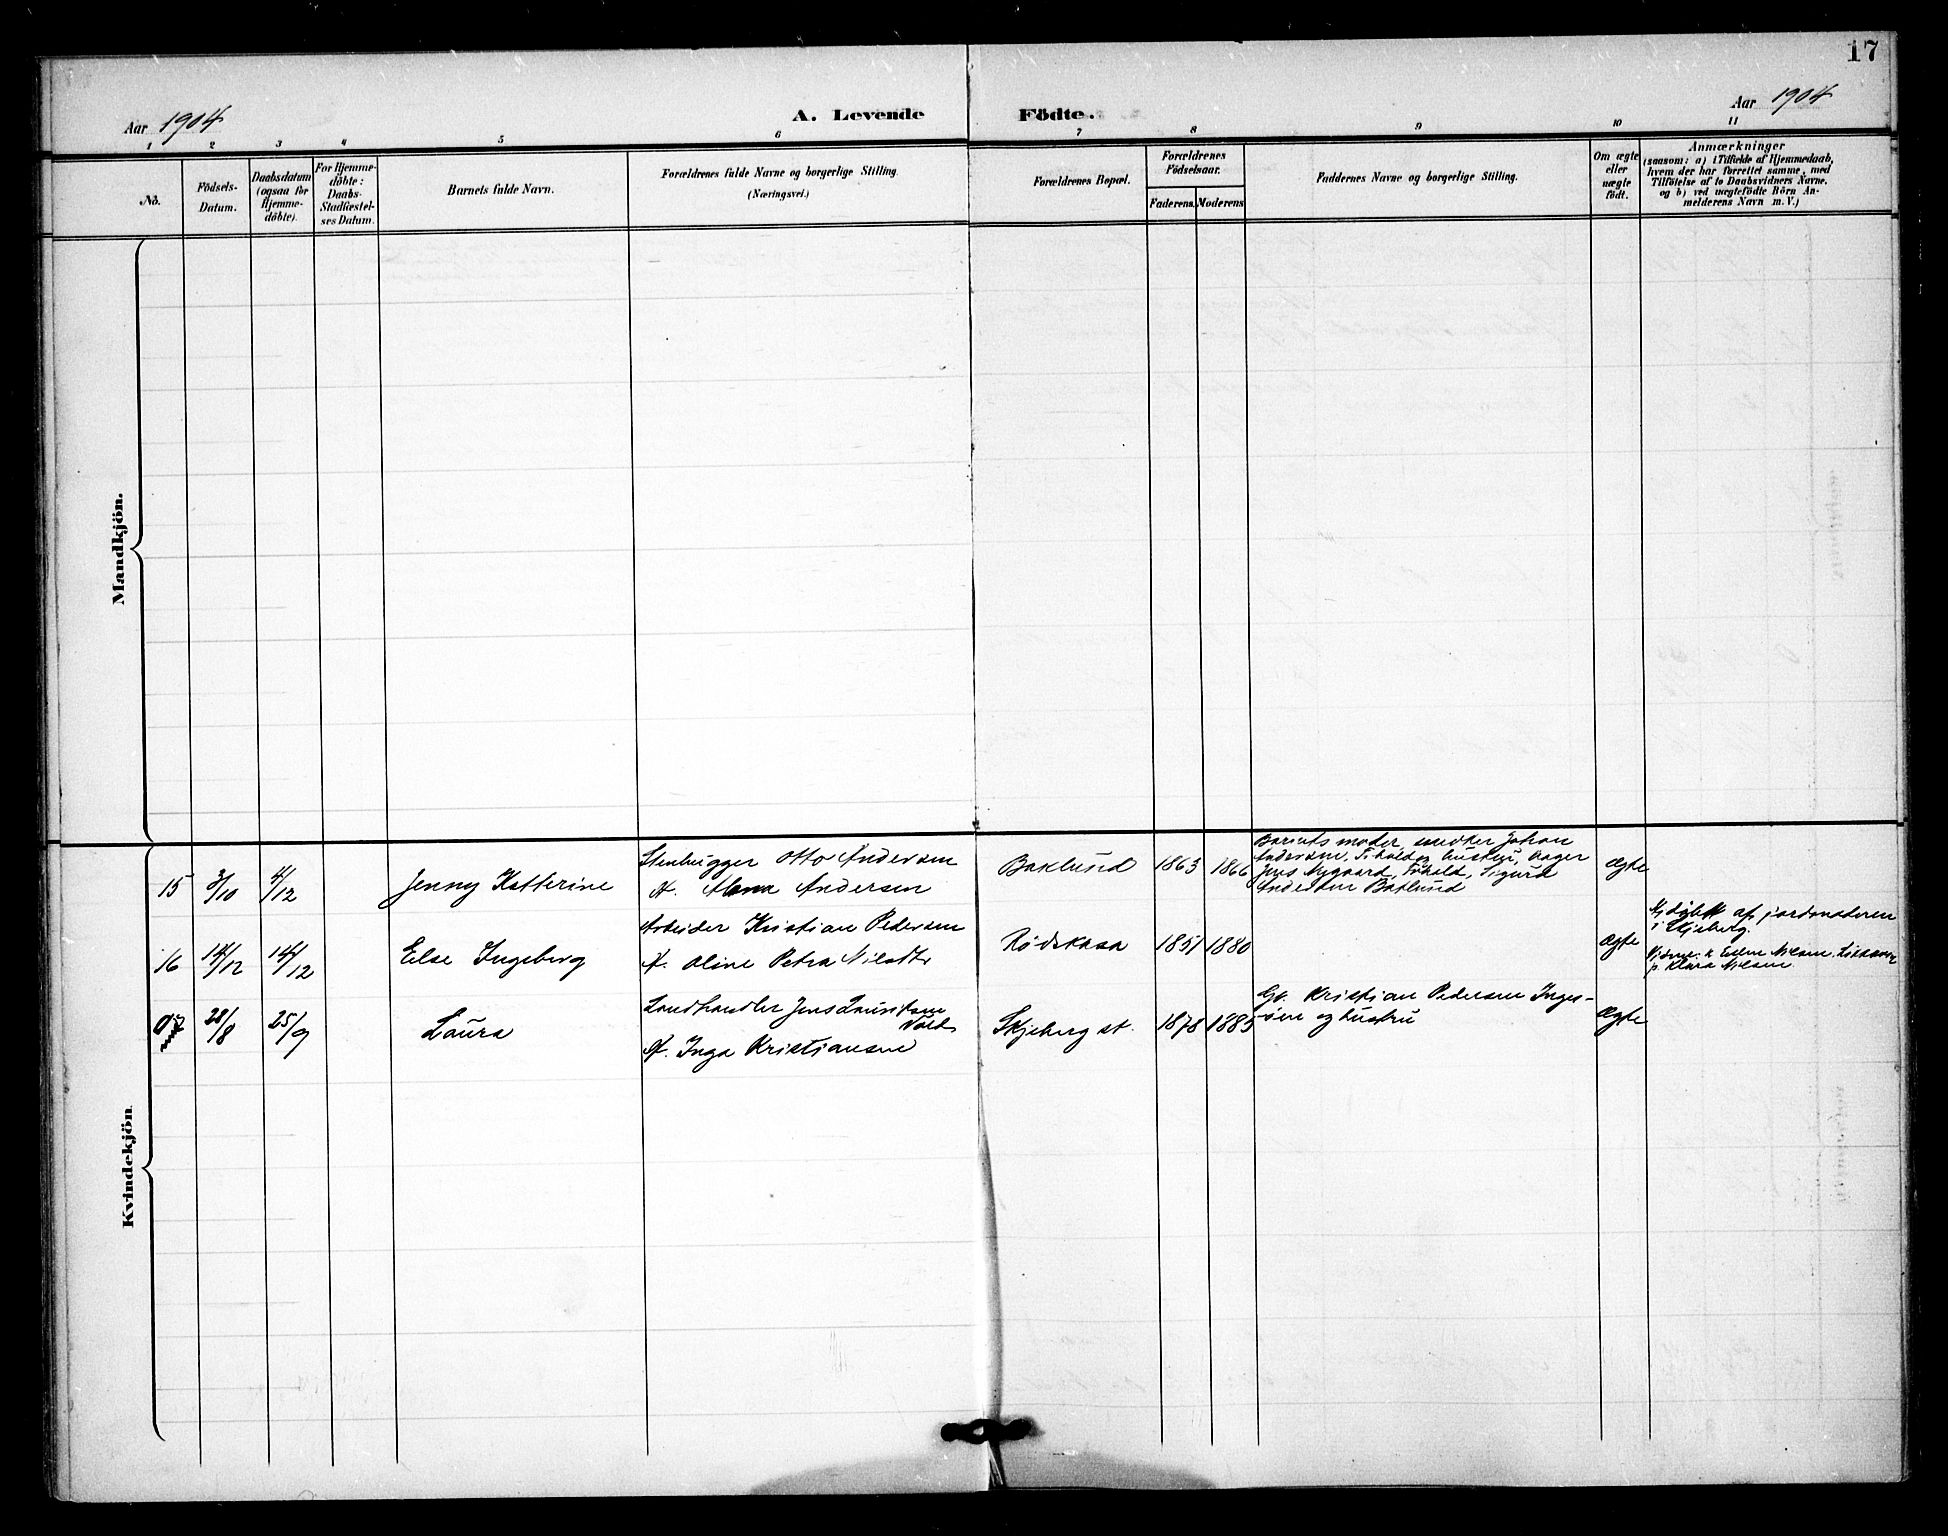 17
Aar 1904
A. Levende Födte.
Aar 1904
1 2 3 4 5 6 7 8 9 10 11
No.
Födsels-
Datum.
Daabsdatum
(ogsaa for
Hjemme-
döbte).
For Hjemme-
döbte:
Daabs-
Stadfæstel-
ses Datum.
Barnets fulde Navn.
Forældrenes fulde Navne og borgerlige Stilling.
(Næringsvei.)
Forældrenes Bopæl.
Forældrenes
Födselsaar.
Faderens. Moderens
Faddernes Navne og borgerlige Stilling.
Om ægte
eller
uægte
födt.
Anmærkninger
(saasom: a) i Tilfælde af Hjemmedaab,
hvem der har forrettet samme, med
Tilföielse af to Daabsvidners Navne,
og b) ved uægtefödte Börn An-
melderens Navn m. V.)
Mandkjön.
Kvindekjön
15 3/10 4/12 Jenny Katterine
Stenhugger Otto Andersen
H. Anna Andersen
Baklund 1863 1866
Barnets moder, snedker Johan
Andersen, hustru, bager
Jens Nygaard, Sigurd
Andersen Baklund
Ægte
16 14/12 14/12 Else Ingeborg
Arbeider Kristian Pedersen
H. Oline Petra Nilsdtr
Rödskasa 1851 1880
Ægte
Hjdöbt af jordmoderen
i Skjeberg.
p. Klara Nilsen
28/8 25/9 Laura
Landhandler Jens Lauritsen
Vold
H. Inga Kristiansen
Skjeberg st. 1878 1885
Gb. Kristian Pedersen Inges-
öen og hustru
Ægte